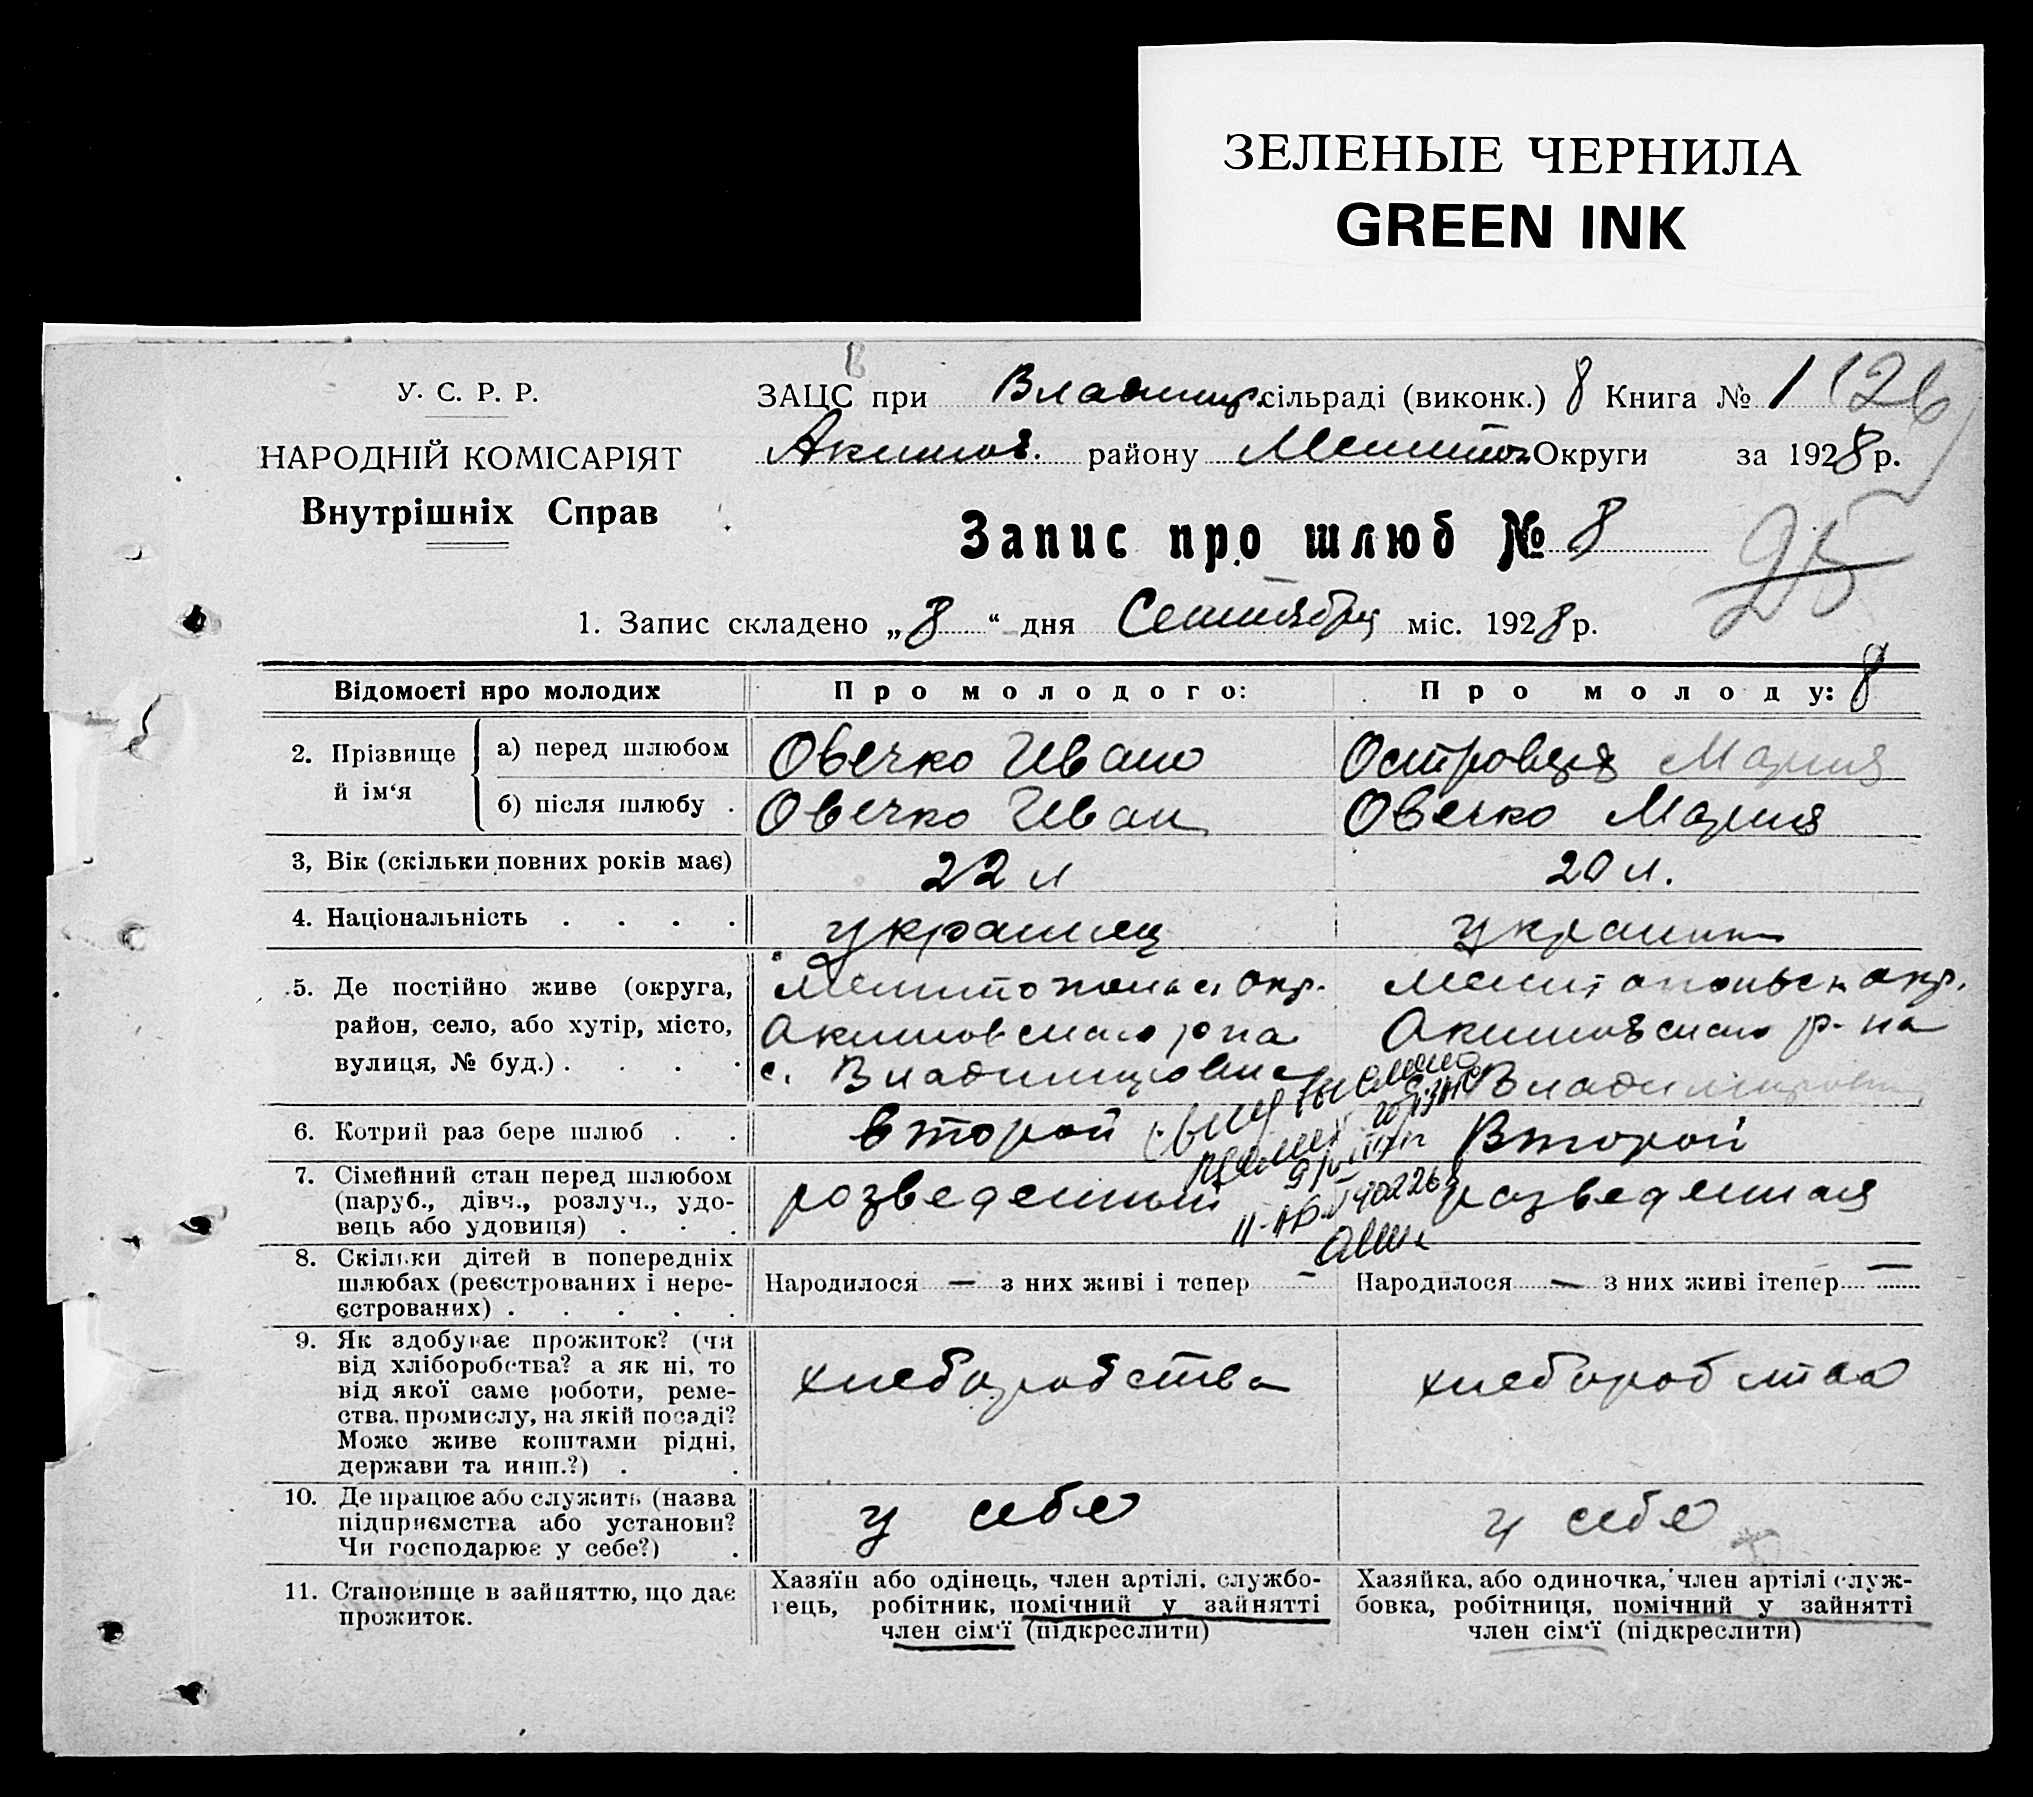 ЗЕЛЕНЫЕ ЧЕРНИЛА
GREEN INK
У. С. Р. Р.
НАРОДНІЙ КОМІСАРІЯТ
Внутрішніх Справ
ЗАЦС при Владимир. сільраді (виконк.) 8 Книга № 1 (26)
Акимов. району Мелитоп Округи за 1928 р.
Запис про шлюб № 8
25
1. Запис складено „8“ дня Сентября міс. 1928 р.
Відомості про молодих
Про молодого:
Про молоду: 8
2. Прізвище й ім‘я
а) перед шлюбом
Овечко Иван
Островця Мария
б) після шлюбу
Овечко Иван
Овечко Мария
3, Вік (скільки повних років має)
22 л
20 л.
4. Національність
украинец
украинк
5. Де постійно живе (округа,
район, село, або хутір, місто,
вулиця, № буд.)
Мелитопольск окр.
Акимовского р на
с. Владимировка
Мелитопольск окр.
Акимовского р-на
Владимировк
6. Котрий раз бере шлюб
второй
Второй
7. Сімейний стан перед шлюбом
(паруб., дівч., розлуч., удо-
вець або удовиця)
розведенный
розведенная
8. Скільки дітей в попередніх
шлюбах (реєстрованих і нере-
єстрованих)
Народилося — з них живі і тепер —
Народилося — з них живі ітепер —
9. Як здобуває прожиток? (чи
від хліборобства? а як ні, то
від якої саме роботи, реме-
ства, промислу, на якій посаді?
Може живе коштами рідні,
держави та инш.?)
хлеборобства
хлеборобства
10. Де працює або служить (назва
підприємства або установи?
Чи господарює у себе?)
у себе
у себе
11. Становище в зайняттю, що дає
прожиток.
Хазяїн або одінець, член артілі, службо-
вець, робітник, помічний у зайнятті
член сім‘ї (підкреслити)
Хазяйка, або одиночка, член артілі служ-
бовка, робітниця, помічний у зайнятті
член сім‘ї (підкреслити)